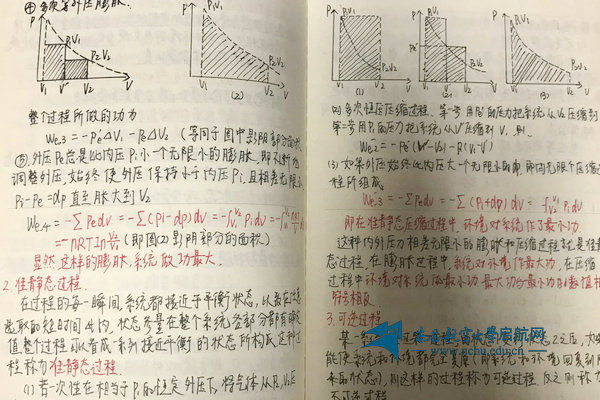 ④多次等外压膨胀.
P
P₁V₁
P₂V₂
V₁ V' V₂ V
P
P₁V₁
P₂V₂
V₁ (2) V₂ V
整个过程所做的功为
We,3 = -Pe'ΔV₁ - PeΔV₂ (等同于图中阴影部分面积)
⑤.外压Pe总是比内压Pi小一个无限小的膨胀,即不断
调整外压,始终使外压保持小于内压Pi,且相差无限小
Pi-Pe=dp 直至胀大到V₂
We,4 = -∑Pedv = -∑(Pi-dp)dv
= -nRTln (即图(2)阴影部分的面积)
显然,这样的膨胀,系统做功最大.
2.准静态过程.
在过程的每一瞬间,系统都接近于平衡状态,以致在
选取的短时间dt内,状态参量在整个系统各部分都有确定
值,整个过程可以看成一系列接近平衡的状态所构成,这种过
程称为准静态过程
(1)若一次性在相当于P₁的恒定外压下,将气体从V₂压
P
P₁V₁
P₂V₂
V₁ V₂ V
(1)
P
P₁V₁
Pe'
P₂V₂
V₁ V' V₂ V
(2)
P
P₁V₁
P₂V₂
V₁ V₂ V
(3)
(2)多次恒压压缩过程.第一步用Pe'的压力把系统从V₂压缩到
第二步用P₁的压力把系统从V'压缩到V₁则.
We,2 = -Pe'(V'-V₂) - P₁(V₁-V')
(3)如果外压始终比内压大一个无限小的值,即由无限个压缩过
程所组成.
We,3 = -∑Pedv = -∑(Pi+dp)dv = Pidv
即在准静态压缩过程中,环境对系统作了最小功.
这种内外压力相差无限小的膨胀和压缩过程就是准静
态过程.在膨胀过程中,系统对环境作最大功,在压缩
过程中环境对体系做最小功.最大功与最小功的数值相
符号相反
3.可逆过程.
能使系统和环境都
来的状态),则这样的过程称为可逆过程.反之则称为
不可逆过程.
www.qchu.edu.cn